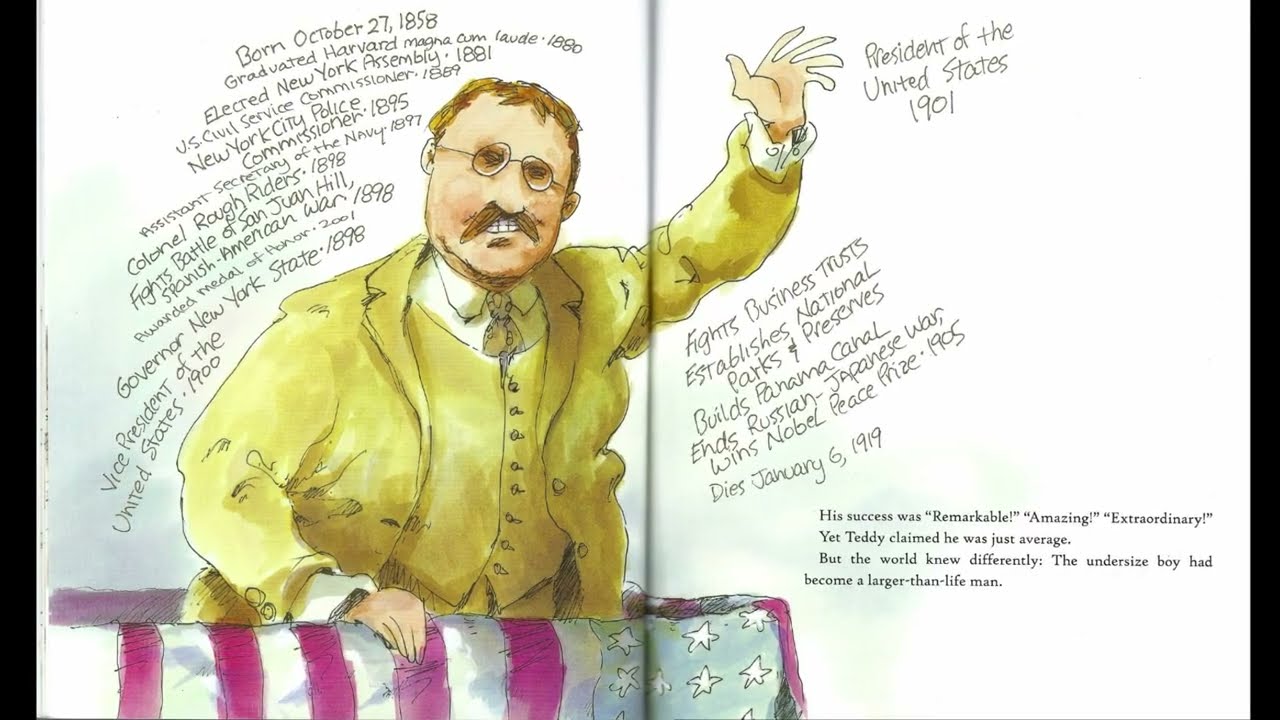 Born October 27, 1858
Graduated Harvard magna cum laude · 1880
Elected New York Assembly · 1881
U.S. Civil Service Commissioner · 1889
New York City Police
Commissioner · 1895
Assistant Secretary of the Navy · 1897
Colonel Rough Riders · 1898
Fights Battle of San Juan Hill,
Spanish-American War · 1898
Awarded Medal of Honor · 2001
Governor New York State · 1898
Vice President of the
United States · 1900
President of the
United States
1901
Fights Business Trusts
Establishes National
Parks & Preserves
Builds Panama Canal
Ends Russian-Japanese War,
Wins Nobel Peace Prize · 1905
Dies January 6, 1919
His success was “Remarkable!” “Amazing!” “Extraordinary!”
Yet Teddy claimed he was just average.
But the world knew differently: The undersize boy had
become a larger-than-life man.